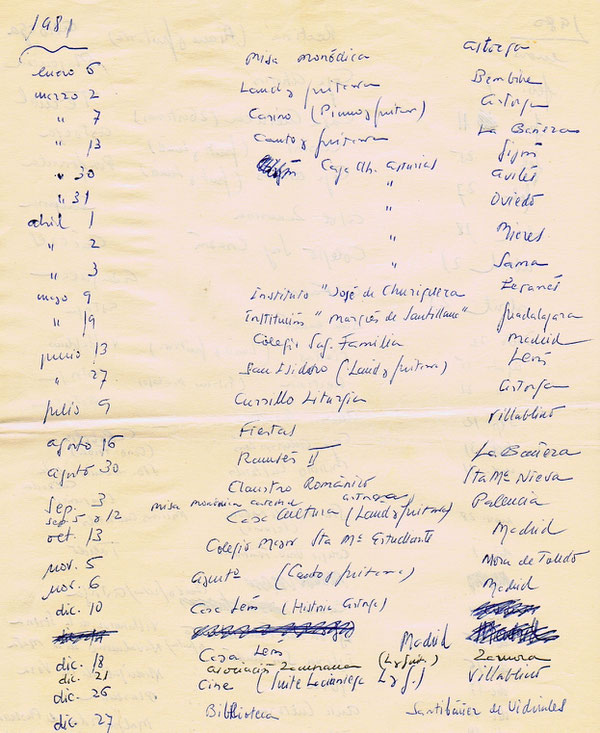 1981
enero 6 misa monódica Astorga
marzo 2 Laud y guitarra Bembibre
" 7 Casino (Piano y guitarra) Astorga
" 13 Canto y guitarra La Bañeza
" 30 Caja Ah. Asturias Gijón
" 31 " Avilés
abril 1 " Oviedo
" 2 " Mieres
" 3 " Sama
mayo 9 Instituto "José de Churriguera Leganés
" 19 Institución "Marqués de Santillana" Guadalajara
junio 13 Colegio Sag. Familia Madrid
" 27 San Isidoro (Laud y guitarra) León
julio 9 Cursillo Liturgia Astorga
agosto 16 Fiestas Villablino
agosto 30 Ramsés II La Bañeza
sep. 3 Claustro Románico Sta Mª Nieva
sep. 5 a 12 misa monódica catedral astorga
oct. 13 Casa Cultura (Laud y guitarra) Palencia
nov. 5 Colegio Mayor Sta Mª Estudiante Madrid
nov. 6 Ayuntº (Canto y guitarra) Mora de Toledo
dic. 10 Casa León (Historia Astorga) Madrid
dic. 18 Casa León Madrid
dic. 21 Asociación Zamorana (L y Guit.) Zamora
dic. 26 Cine (Suite Lacianiega L y G.) Villablino
dic. 27 Biblioteca Santibáñez de Vidriales